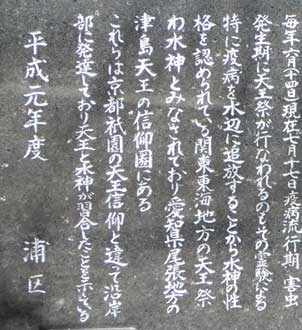 毎年六月十四日現在七月十七日疫病流行期 害虫
発生期に天王祭が行なわれるのもその霊験による
特に疫病を水辺に追放することから水神の性
格を認められている関東東海地方の天王祭
わ水神とみなされており愛知県尾張地方の
津島天王の信仰圏にある
これらは京都祇園の天王信仰と違って沿岸
部に発達しており天王と水神が習合したことを示している
平成元年度 浦区